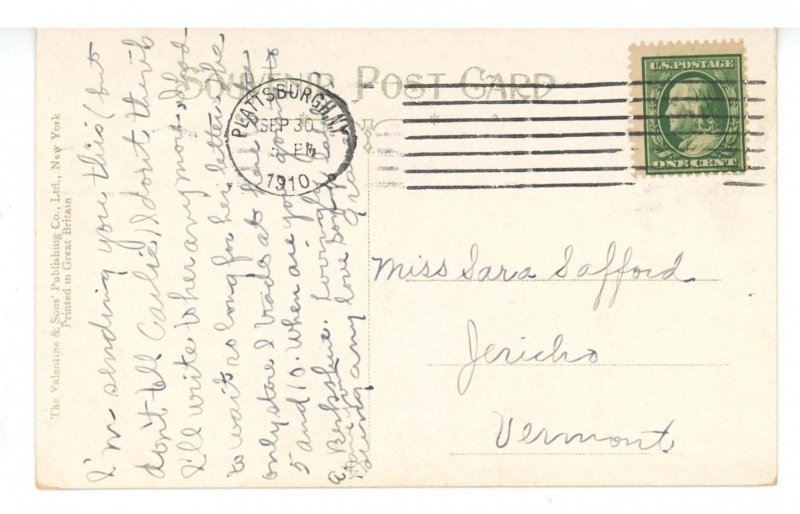 SOUVENIR POST CARD
U.S. POSTAGE
ONE CENT
PLATTSBURGH, N.Y.
SEP 30
PM
1910
The Valentine & Sons' Publishing Co., Ltd., New York
Printed in Great Britain
I'm sending you this (but
don't tell Carlie) I don't think
I'll write to her any more. I had
to wait so long for her letters. The
only store I trade at here is
5 and 10. When are you going to
a Loving
any love
Miss Sara Safford
Jericho
Vermont